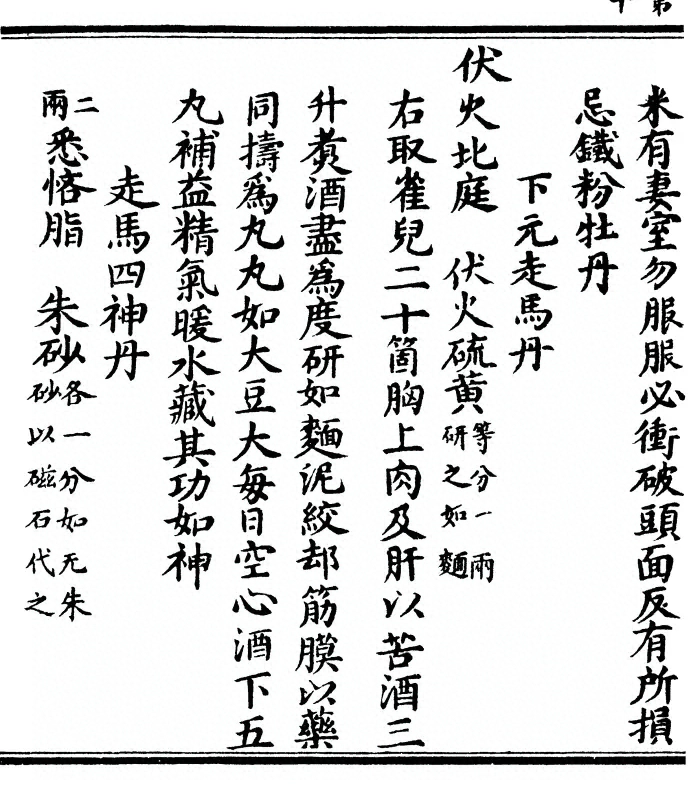 米有妻室勿服服必衝破頭面反有所損
忌鐵粉牡丹
下元走馬丹
伏火北庭　伏火硫黃等分一兩研之如麵
右取雀兒二十箇胸上肉及肝以苦酒三
升煑酒盡為度研如麵泥絞却筋膜以藥
同擣為丸丸如大豆大每日空心酒下五
丸補益精氣暖水藏其功如神
走馬四神丹
二兩悉㥛脂　朱砂各一分如无朱砂以磁石代之